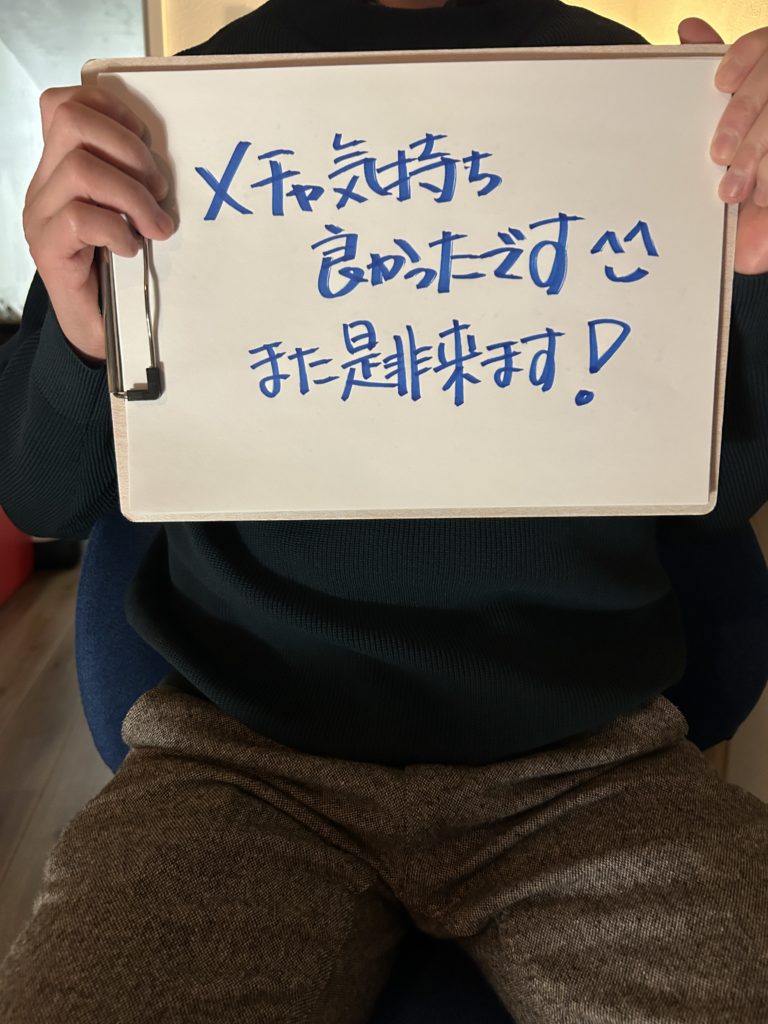 メチャ気持ち
良かったです^^
また是非来ます!